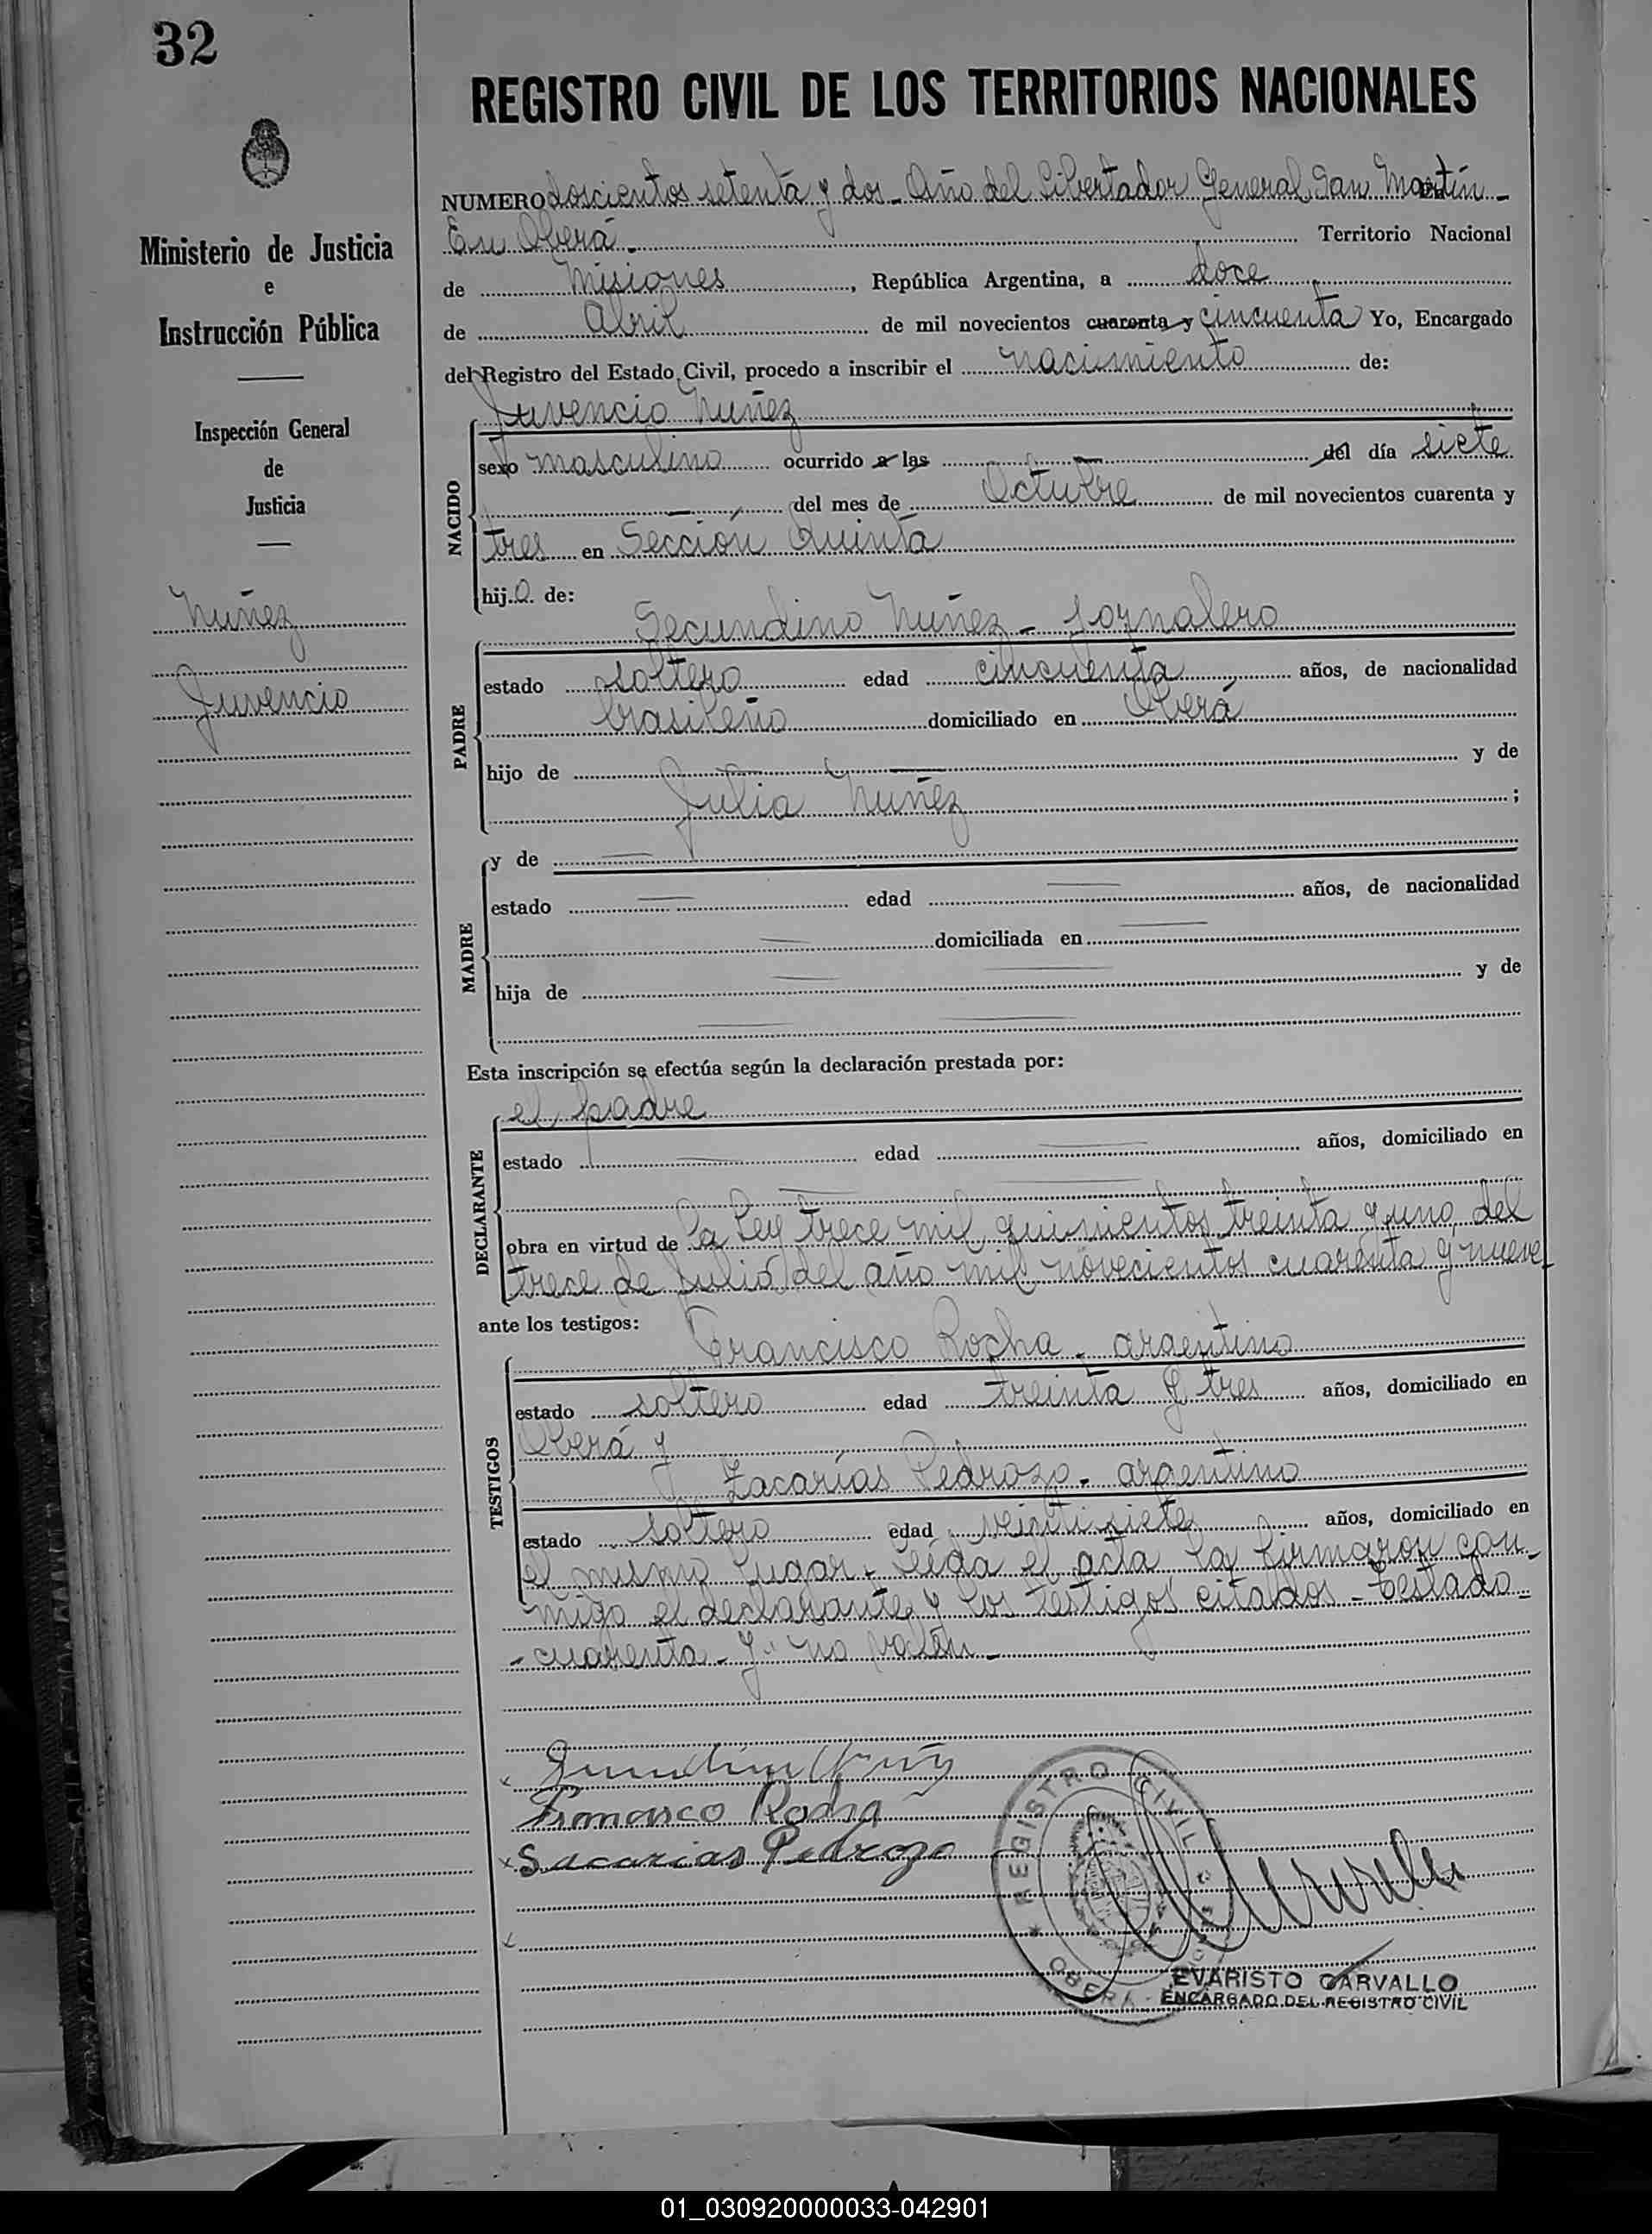 32
REGISTRO CIVIL DE LOS TERRITORIOS NACIONALES
Ministerio de Justicia
e
Instrucción Pública
Inspección General
de
Justicia
Nuñez
Juvencio
NUMERO doscientos setenta y dos - Año del Libertador General San Martín -
En Oberá - Territorio Nacional
de Misiones, República Argentina, a doce
de Abril de mil novecientos cuarenta y cincuenta Yo, Encargado
del Registro del Estado Civil, procedo a inscribir el nacimiento de:
Juvencio Nuñez
NACIDO
sexo masculino ocurrido a las — del día siete
— del mes de Octubre de mil novecientos cuarenta y
tres en Sección Quinta
hijo de:
PADRE
Secundino Nuñez - Jornalero
estado soltero edad cincuenta años, de nacionalidad
brasileño domiciliado en Oberá
hijo de — y de
Julia Nuñez ;
MADRE
y de —
estado — edad — años, de nacionalidad
— domiciliada en —
hija de — y de
—
Esta inscripción se efectúa según la declaración prestada por:
DECLARANTE
el padre
estado — edad — años, domiciliado en
—
obra en virtud de la Ley trece mil quinientos treinta y uno del
trece de Julio del año mil novecientos cuarenta y nueve -
ante los testigos:
TESTIGOS
Francisco Rocha - argentino
estado soltero edad treinta y tres años, domiciliado en
Oberá y
Zacarías Pedrozo - argentino
estado soltero edad veinti siete años, domiciliado en
el mismo lugar - Leída el acta la firmaron con-
migo el declarante y los testigos citados - Testado -
- cuarenta - y - no valen -
Francisco Rocha
Sacarias Pedrozo
REGISTRO CIVIL
OBERA
EVARISTO CARVALLO
ENCARGADO DEL REGISTRO CIVIL
01_030920000033-042901